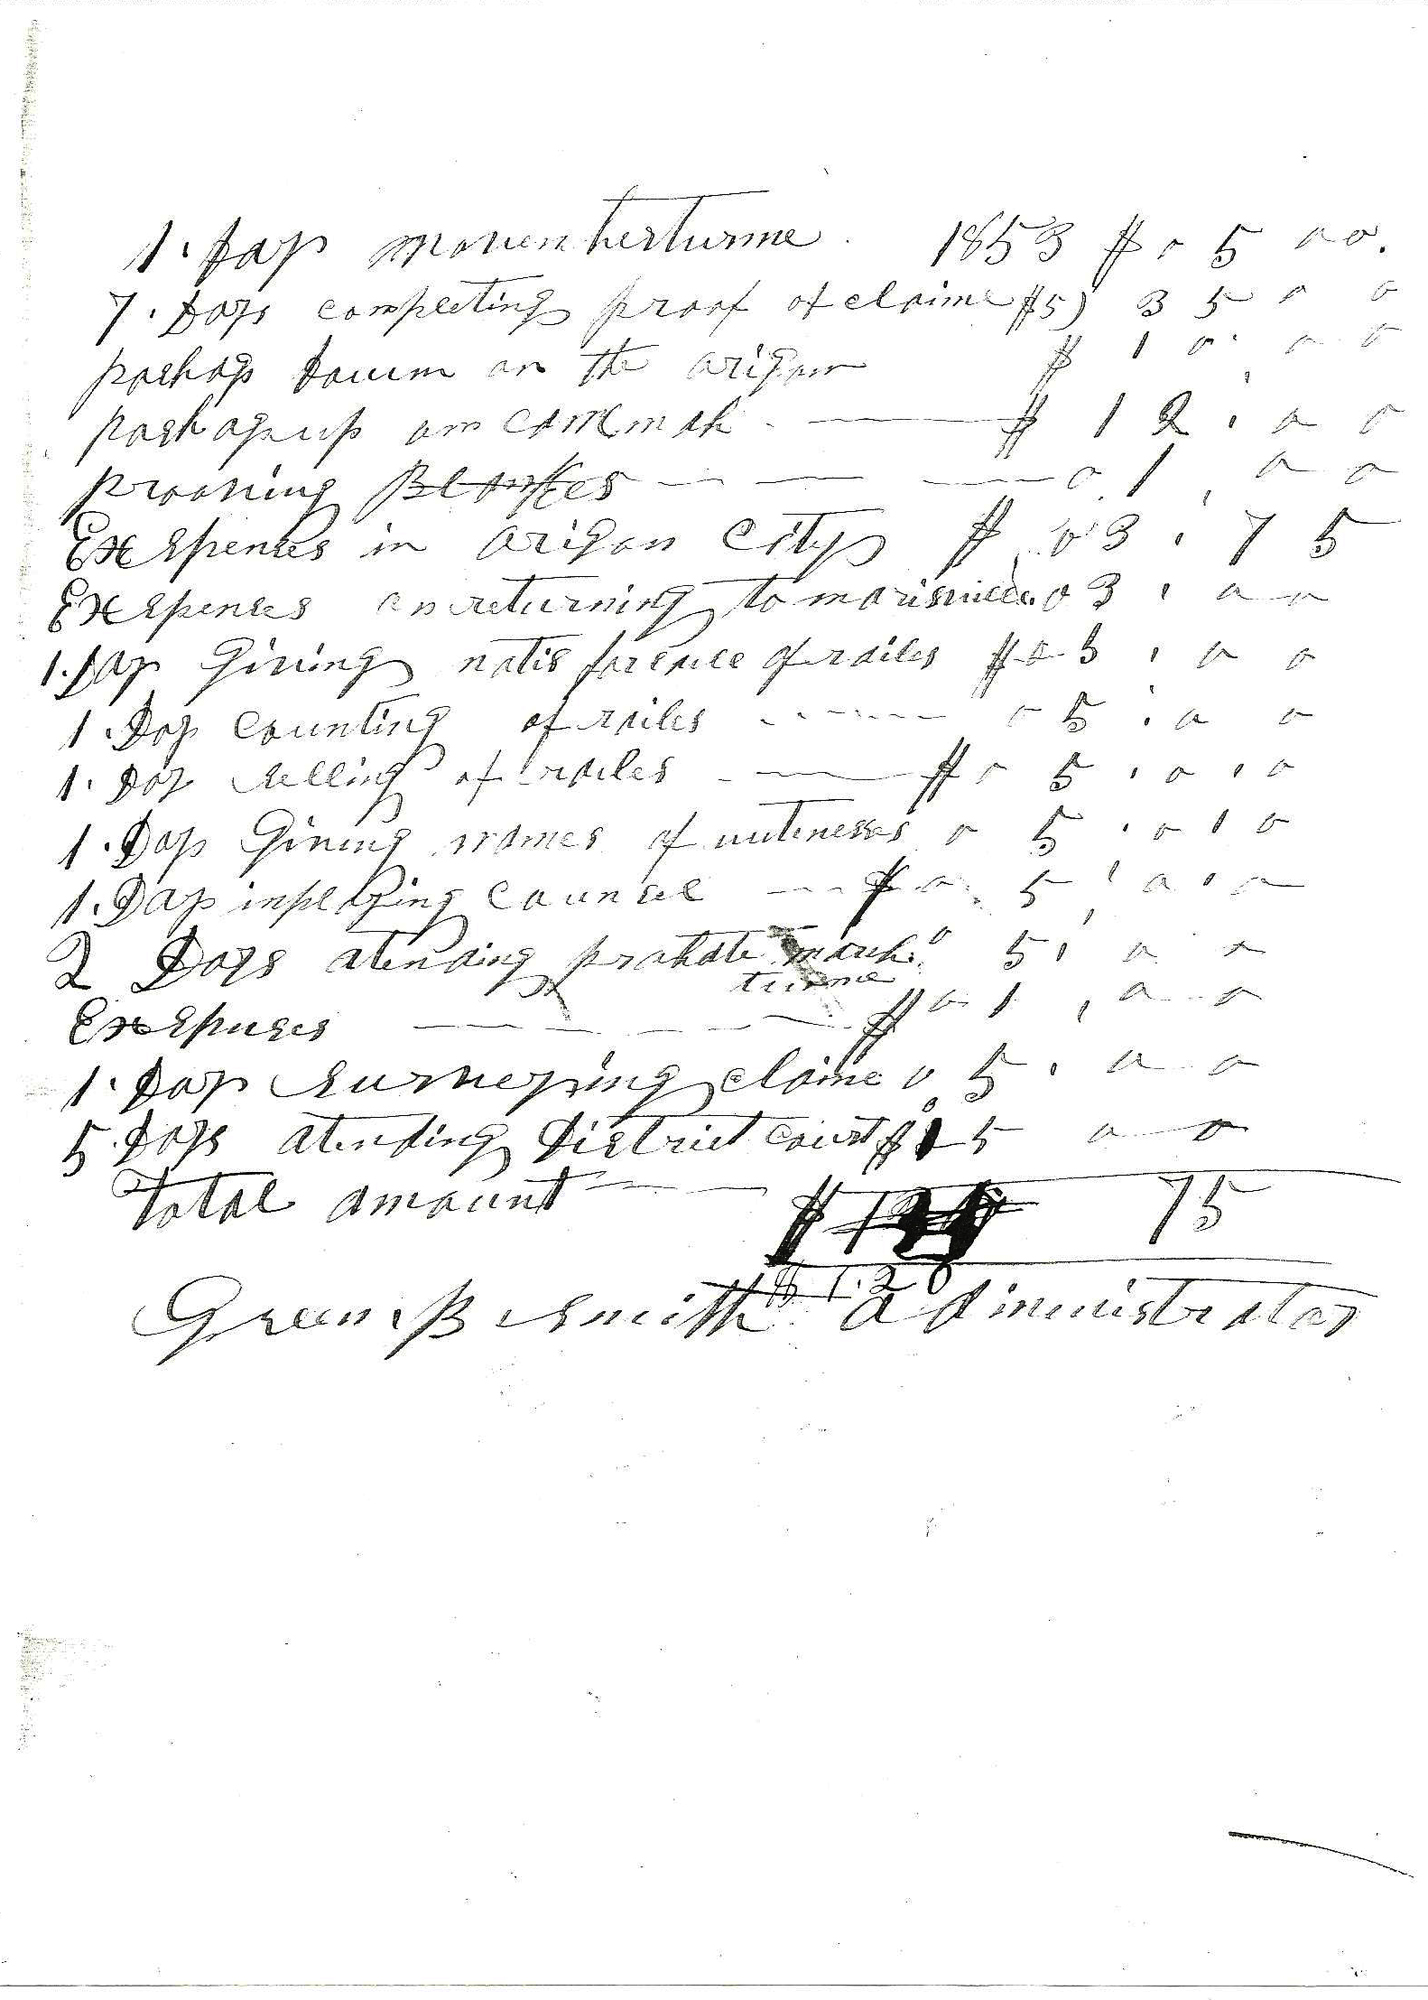 1. Day Novembertirme 1853 $ 0 5 00.
7. Days compleeting proof of claime $5) 35 00
pashag doum on the origon $ 10. 00
pashag up on cammak - $ 12. 00
prooning Blankes - - - 0 1, 00
Exspenses in origon City $ 03. 75
Exspenses on returning to 03. 00
1. Day Giving notis forsale of railes $ 05. 00
1. Day counting of railes - - - 05. 00
1. Day selling of railes - $ 05. 0.0
1. Day Giving names of wittnesses 05. 0.0
1. Day inploying Counsel - - $ 05, 0.0
2 Days atending probate march 0 5. 00
turme
Exspenses - - - $ 01, 00
1. Day surveying claime 05. 00
5. Days atending District court $ 15 00
Total amount - - $ 75
$ 120
Green. B Smith administrator